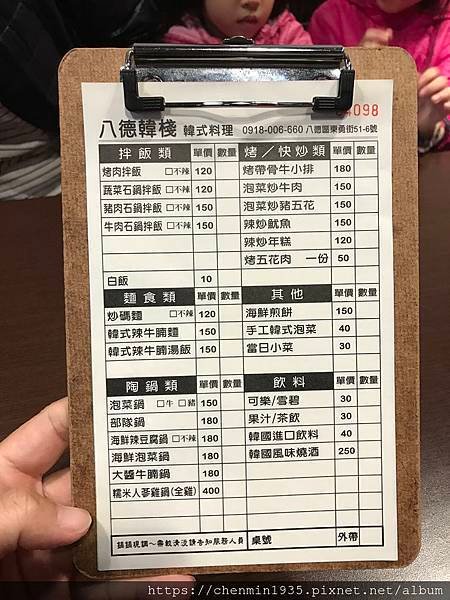 4098
八德韓棧 韓式料理 0918-006-660 八德區東勇街51-6號
拌飯類 單價 數量
烤肉拌飯 □不辣 120
蔬菜石鍋拌飯 □不辣 120
豬肉石鍋拌飯 □不辣 150
牛肉石鍋拌飯 □不辣 150
白飯 10
麵食類 單價 數量
炒碼麵 □不辣 120
韓式辣牛腩麵 150
韓式辣牛腩湯飯 150
陶鍋類 單價 數量
泡菜鍋 □牛 □豬 150
部隊鍋 180
海鮮辣豆腐鍋 □不辣 180
海鮮泡菜鍋 180
大醬牛腩鍋 180
糯米人蔘雞鍋(全雞) 400
烤/快炒類 單價 數量
烤帶骨牛小排 180
泡菜炒牛肉 150
泡菜炒豬五花 150
辣炒魷魚 150
辣炒年糕 120
烤五花肉 一份 50
其他 單價 數量
海鮮煎餅 150
手工韓式泡菜 40
當日小菜 30
飲料 單價 數量
可樂/雪碧 30
果汁/茶飲 30
韓國進口飲料 40
韓國風味燒酒 250
鍋鍋現調~需較清淡請告知服務人員
桌號 外帶
https://chenmin1935.pixnet.net/album